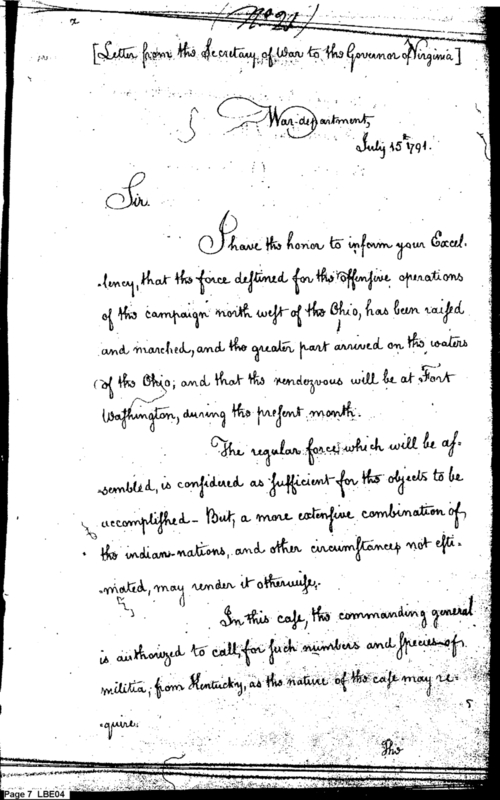 (No 21)
[Letter from the Secretary of War to the Governor of Virginia]
War-department,
July 15th 1791.
Sir.
I have the honor to inform your Excel-
-lency, that the force destined for the offensive operations
of the campaign north west of the Ohio, has been raised
and marched, and the greater part arrived on the waters
of the Ohio; and that the rendezvous will be at Fort
Washington, during the present month.
The regular force, which will be as-
-sembled, is considered as sufficient for the objects to be
accomplished - But, a more extensive combination of
the indian-nations, and other circumstances not esti-
-mated, may render it otherwise.
In this case, the commanding general
is authorized to call, for such numbers and species of
militia, from Kentucky, as the nature of the case may re-
-quire.
The
Page 7 LBE04